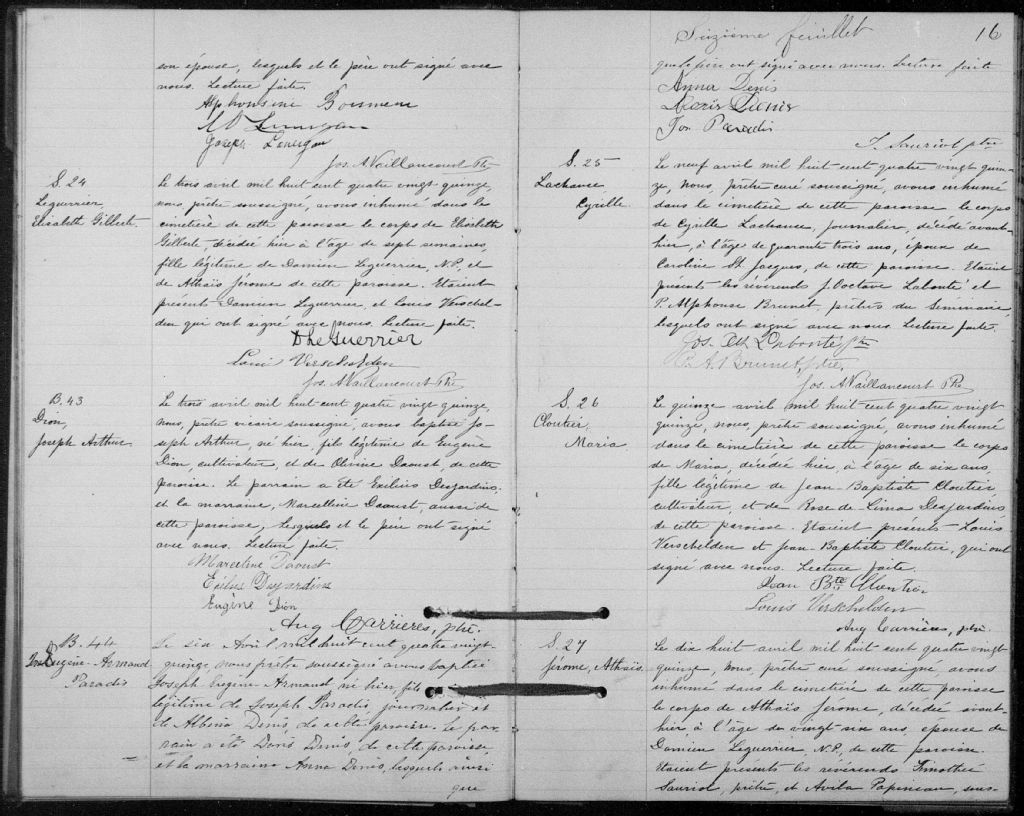 son épouse, lesquels et le père ont signé avec
nous. Lecture faite.
Alphonsine
Joseph
Jos. A Vaillancourt Ptre
S. 24
Leguerrier,
Elisabeth Gilbert.
Le trois avril mil huit cent quatre vingt-quinze,
nous, prêtre soussigné, avons inhumé dans le
cimetière de cette paroisse le corps de Elisabeth
Gilberte, décédée hier à l'âge de sept semaines,
fille légitime de Damien Leguerrier, N.P. et
de Athaïs Jérome de cette paroisse. Etaient
présents Damien Leguerrier et Louis Verschel-
den qui ont signé avec nous. Lecture faite.
D LeGuerrier
Louis Verschelden
Jos. A Vaillancourt Ptre
B. 43
Dion,
Joseph Arthur
Le trois avril mil huit cent quatre vingt quinze,
nous, prêtre vicaire soussigné, avons baptisé Jo-
seph Arthur, né hier, fils légitime de Eugène
Dion, cultivateur, et de Olivine Daoust, de cette
paroisse. Le parrain a été Exilius Desjardins,
et la marraine, Marcelline Daoust, aussi de
cette paroisse, lesquels et le père ont signé
avec nous. Lecture faite.
Marceline Daoust
Exilius Desjardins
Eugène Dion
Aug Carrières, ptre.
B. 44
Jos Eugène-Armand
Paradis
Le six Avril mil huit cent quatre vingt-
quinze nous prêtre soussigné avons baptisé
Joseph Eugène Armand, né hier, fils
légitime de Joseph Paradis, journalier et
de Albina Denis, de cette paroisse. Le par-
rain a été Denis, de cette paroisse
et la marraine Anna Denis, lesquels ainsi
que
Seizième feuillet
16
que le père ont signé avec nous. Lecture faite
Anna Denis
Denis
Jos Paradis
T. Sauriol ptre
S. 25
Lachance
Cyrille.
Le neuf avril mil huit cent quatre vingt quin-
ze, nous, prêtre curé soussigné, avons inhumé
dans le cimetière de cette paroisse le corps
de Cyrille Lachance, journalier, décédé avant-
hier, à l'âge de quarante trois ans, époux de
Caroline St Jacques, de cette paroisse. Etaient
présents les révérends J. Octave Labonté et
P. Alphonse Brunet, prêtres du Séminaire,
lesquels ont signé avec nous. Lecture faite.
Jos. Labonté, ptre
P. A. Brunet, ptre,
Jos. A Vaillancourt Ptre
S. 26
Cloutier,
Maria
Le quinze avril mil huit cent quatre vingt
quinze, nous, prêtre soussigné, avons inhumé
dans le cimetière de cette paroisse le corps
de Maria, décédée hier, à l'âge de six ans,
fille légitime de Jean-Baptiste Cloutier
cultivateur, et de Rose de Lima Desjardins
de cette paroisse. Etaient présents Louis
Verschelden et Jean-Baptiste Cloutier, qui ont
signé avec nous. Lecture faite.
Jean Bte Cloutier
Louis Verschelden
Aug Carrières, ptre.
S. 27
Jérome, Athaïs.
Le dix huit avril mil huit cent quatre vingt
quinze, nous, prêtre curé soussigné avons
inhumé dans le cimetière de cette paroisse
le corps de Athaïs Jérome, décédée avant-
hier à l'âge de vingt-six ans, épouse de
Damien Leguerrier, N.P. de cette paroisse.
Etaient présents les révérends Timothée
Sauriol, prêtre, et Avila Papineau, sous-